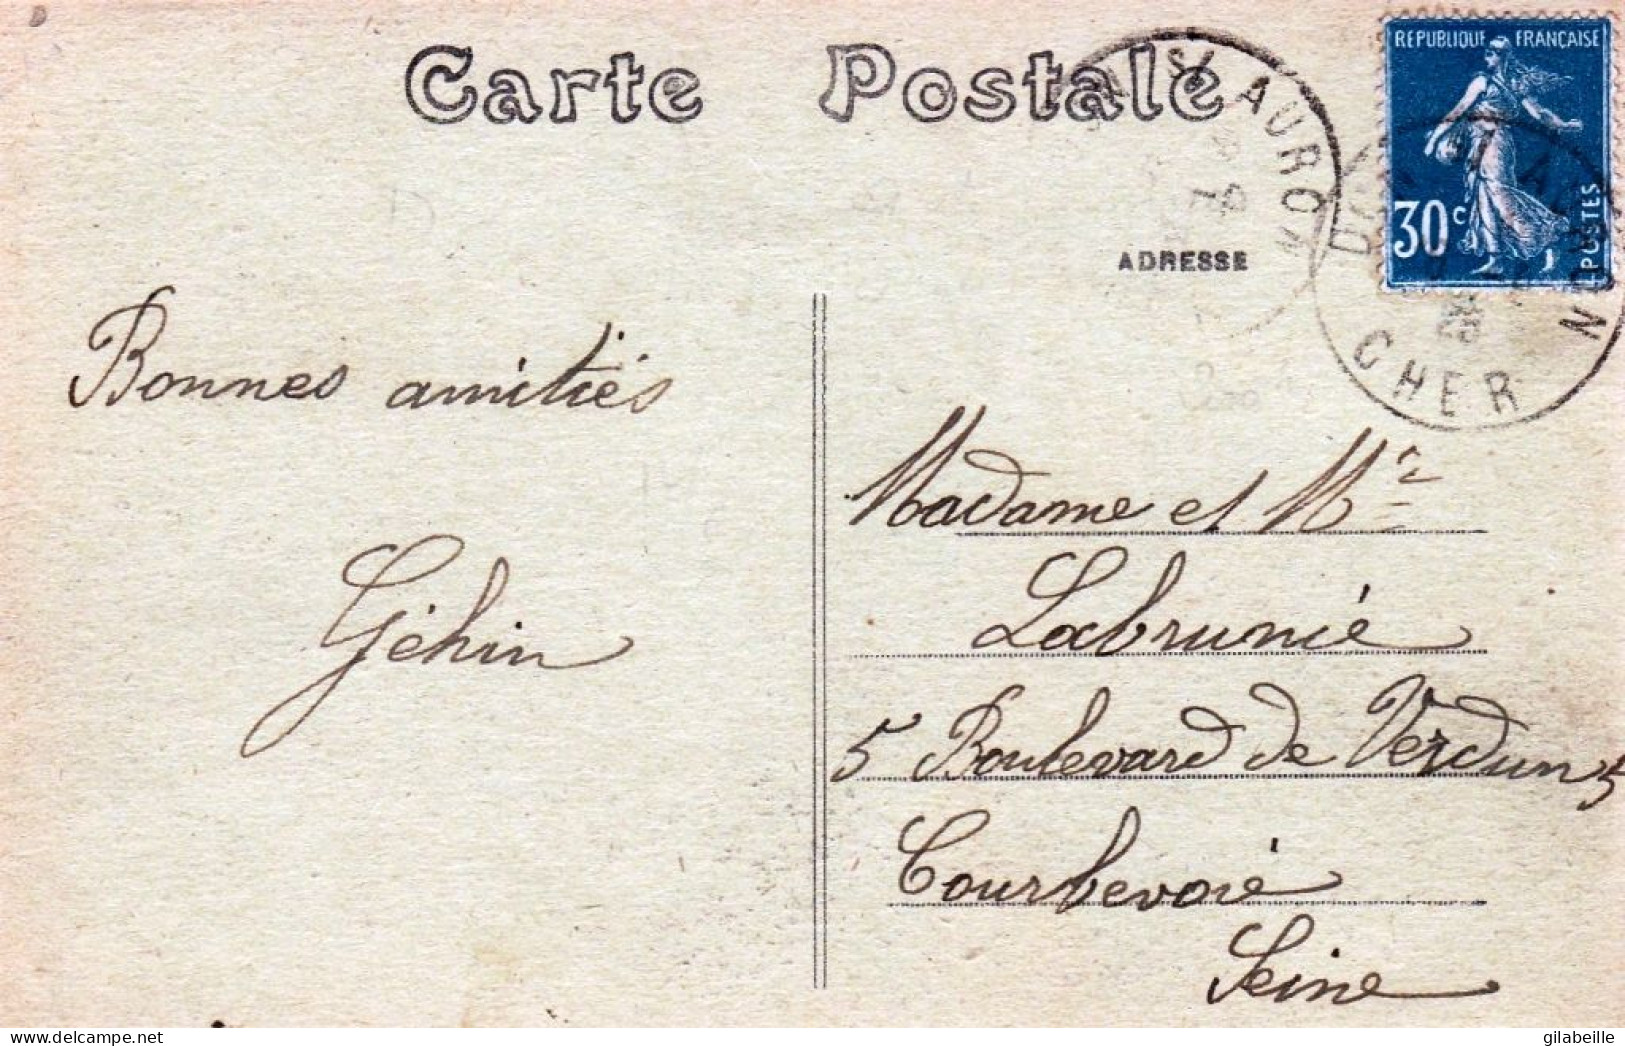 Carte Postale
REPUBLIQUE FRANÇAISE
30c
POSTES
S/ AURON
CHER
ADRESSE
Bonnes amitiés
Géhin
Madame et Mr
Labrunie
5 Boulevard de Verdun 5
Courbevoie
Seine
delcampe.net
gilabeille